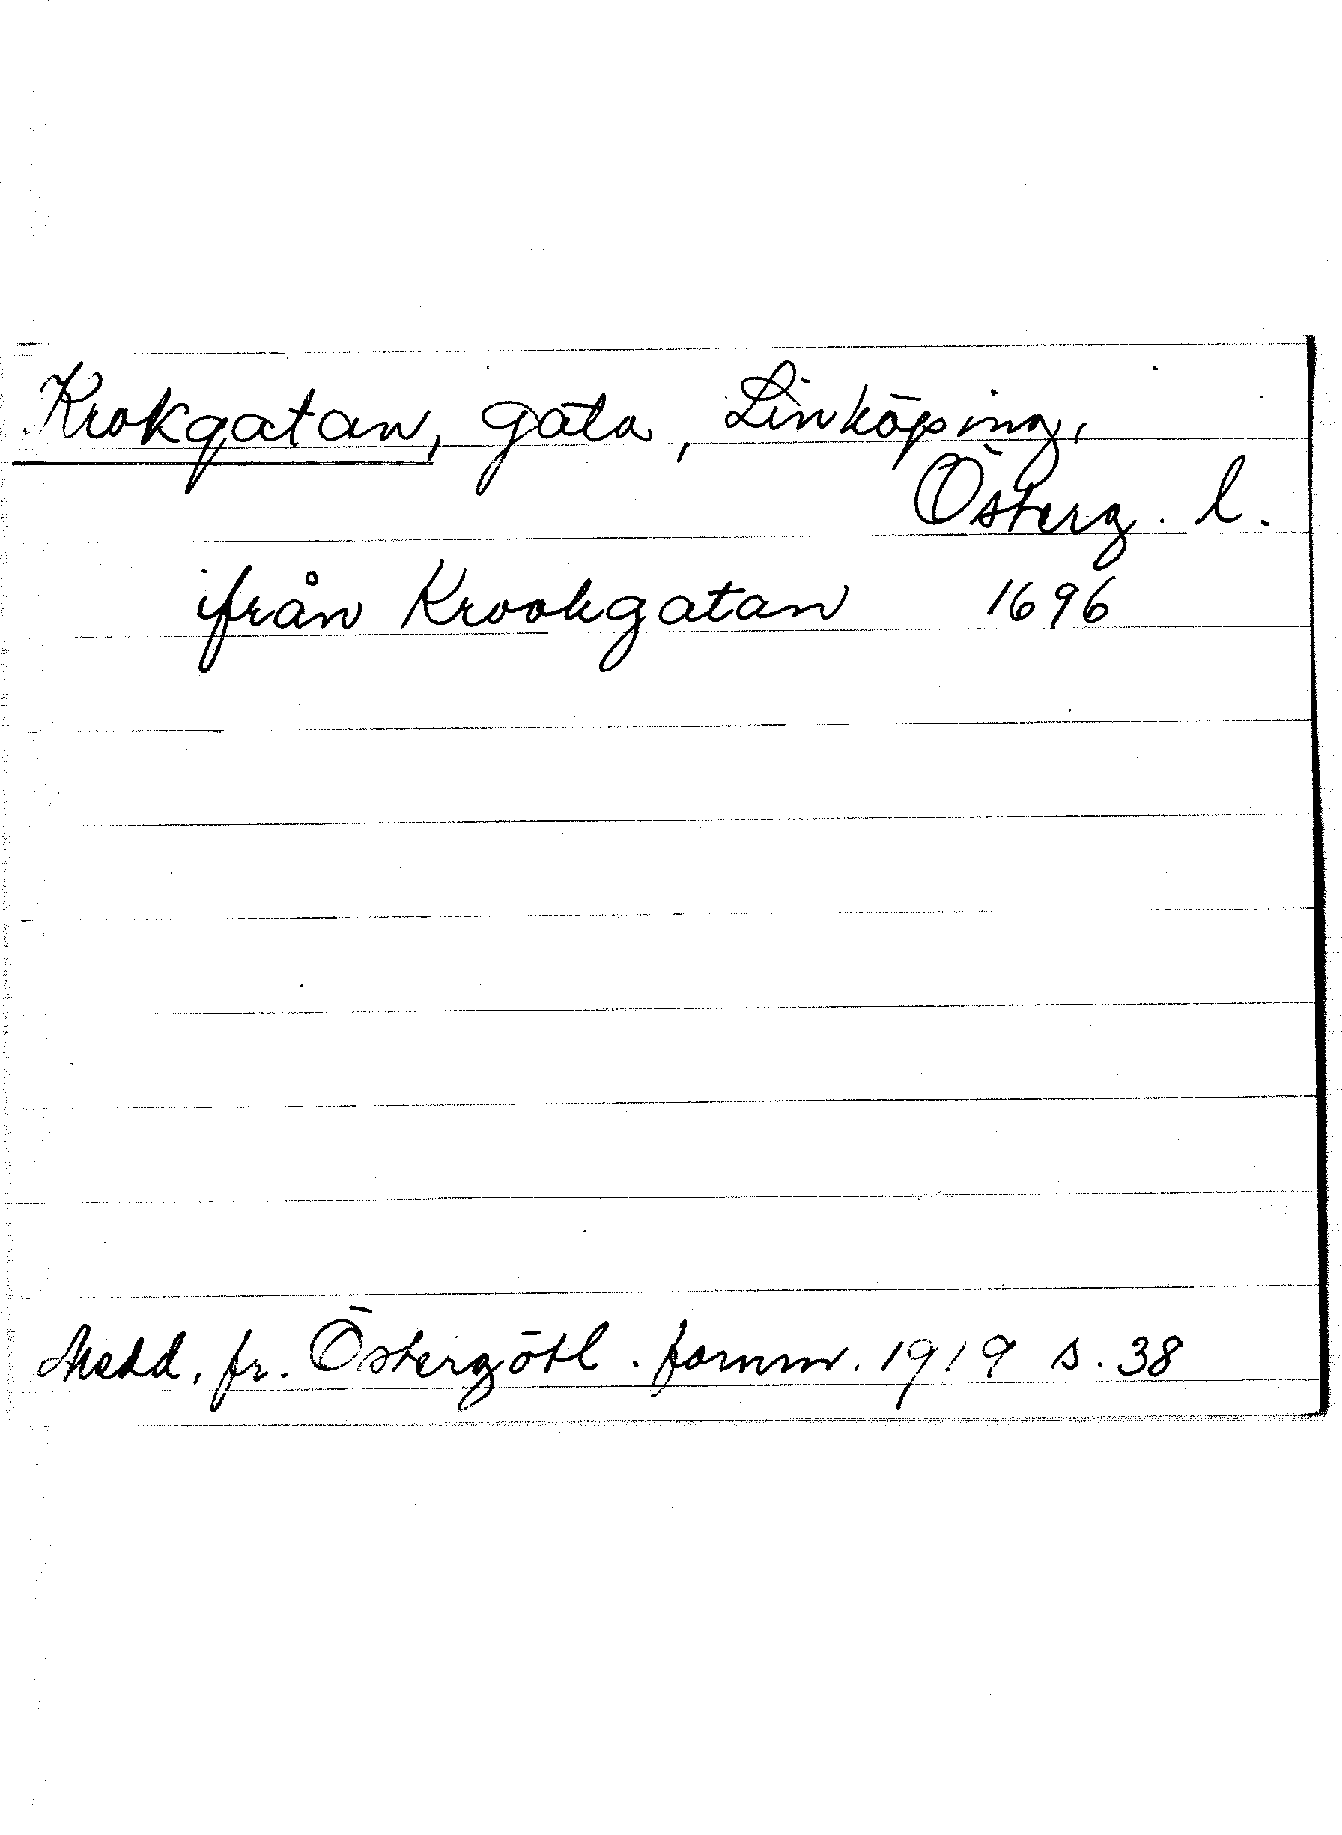 Krokgatan, gata, Linköping,
Österg. l.
ifrån Krookgatan 1696
Medd. fr. Östergötl. fornm. 1919 s. 38